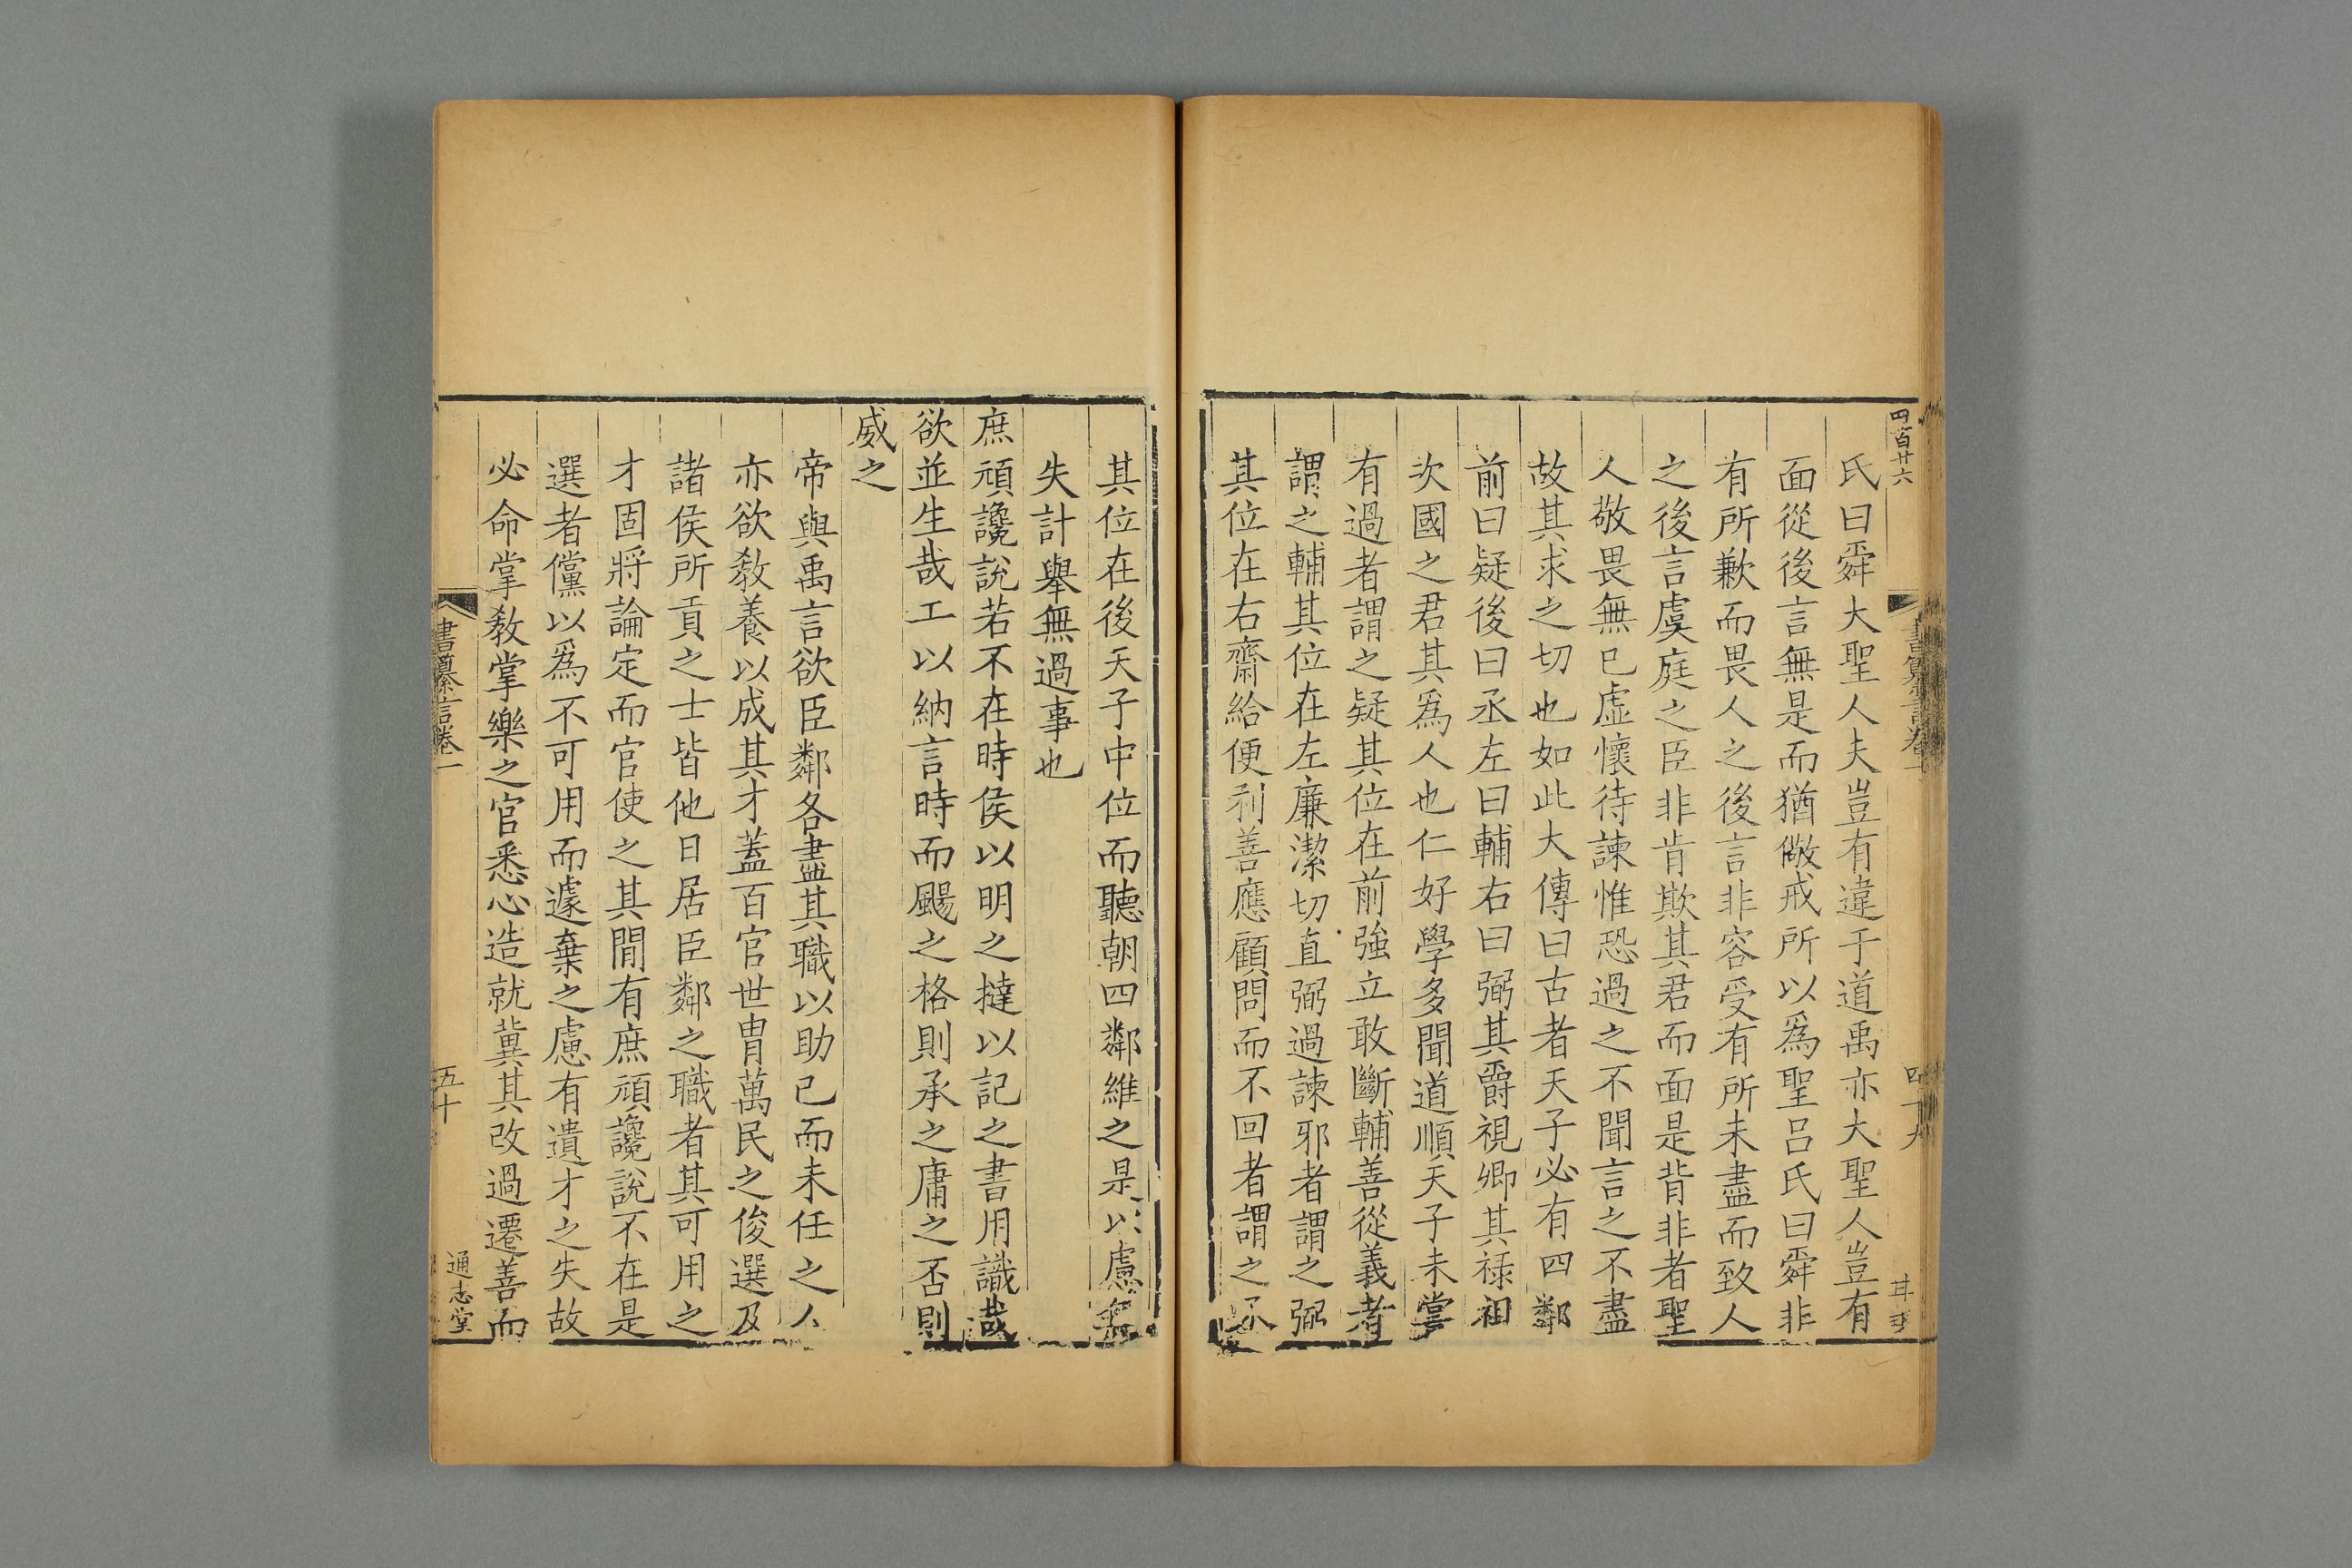 四百廿六
氏曰舜大聖人夫豈有違于道禹亦大聖人豈有
面從後言無是而猶儆戒所以爲聖呂氏曰舜非
有所歉而畏人之後言非容受有所未盡而致人
之後言虞庭之臣非肯欺其君而面是背非者聖
人敬畏無已虛懷待諫惟恐過之不聞言之不盡
故其求之切也如此大傳曰古者天子必有四鄰
前曰疑後曰丞左曰輔右曰弼其爵視卿其祿視
次國之君其爲人也仁好學多聞道順天子未嘗
有過者謂之疑其位在前強立敢斷輔善從義者
謂之輔其位在左廉潔切直弼過諫邪者謂之弼
其位在右齋給便利善應顧問而不回者謂之丞
其位在後天子中位而聽朝四鄰維之是以慮無
失計舉無過事也
庶頑讒說若不在時侯以明之撻以記之書用識哉
欲並生哉工以納言時而颺之格則承之庸之否則
威之
帝與禹言欲臣鄰各盡其職以助已而未任之人
亦欲敎養以成其才蓋百官世冑萬民之俊選及
諸侯所貢之士皆他日居臣鄰之職者其可用之
才固將論定而官使之其間有庶頑讒說不在是
選者儻以爲不可用而遽棄之慮有遺才之失故
必命掌敎掌樂之官悉心造就冀其改過遷善而
書纂言卷一
五十
通志堂